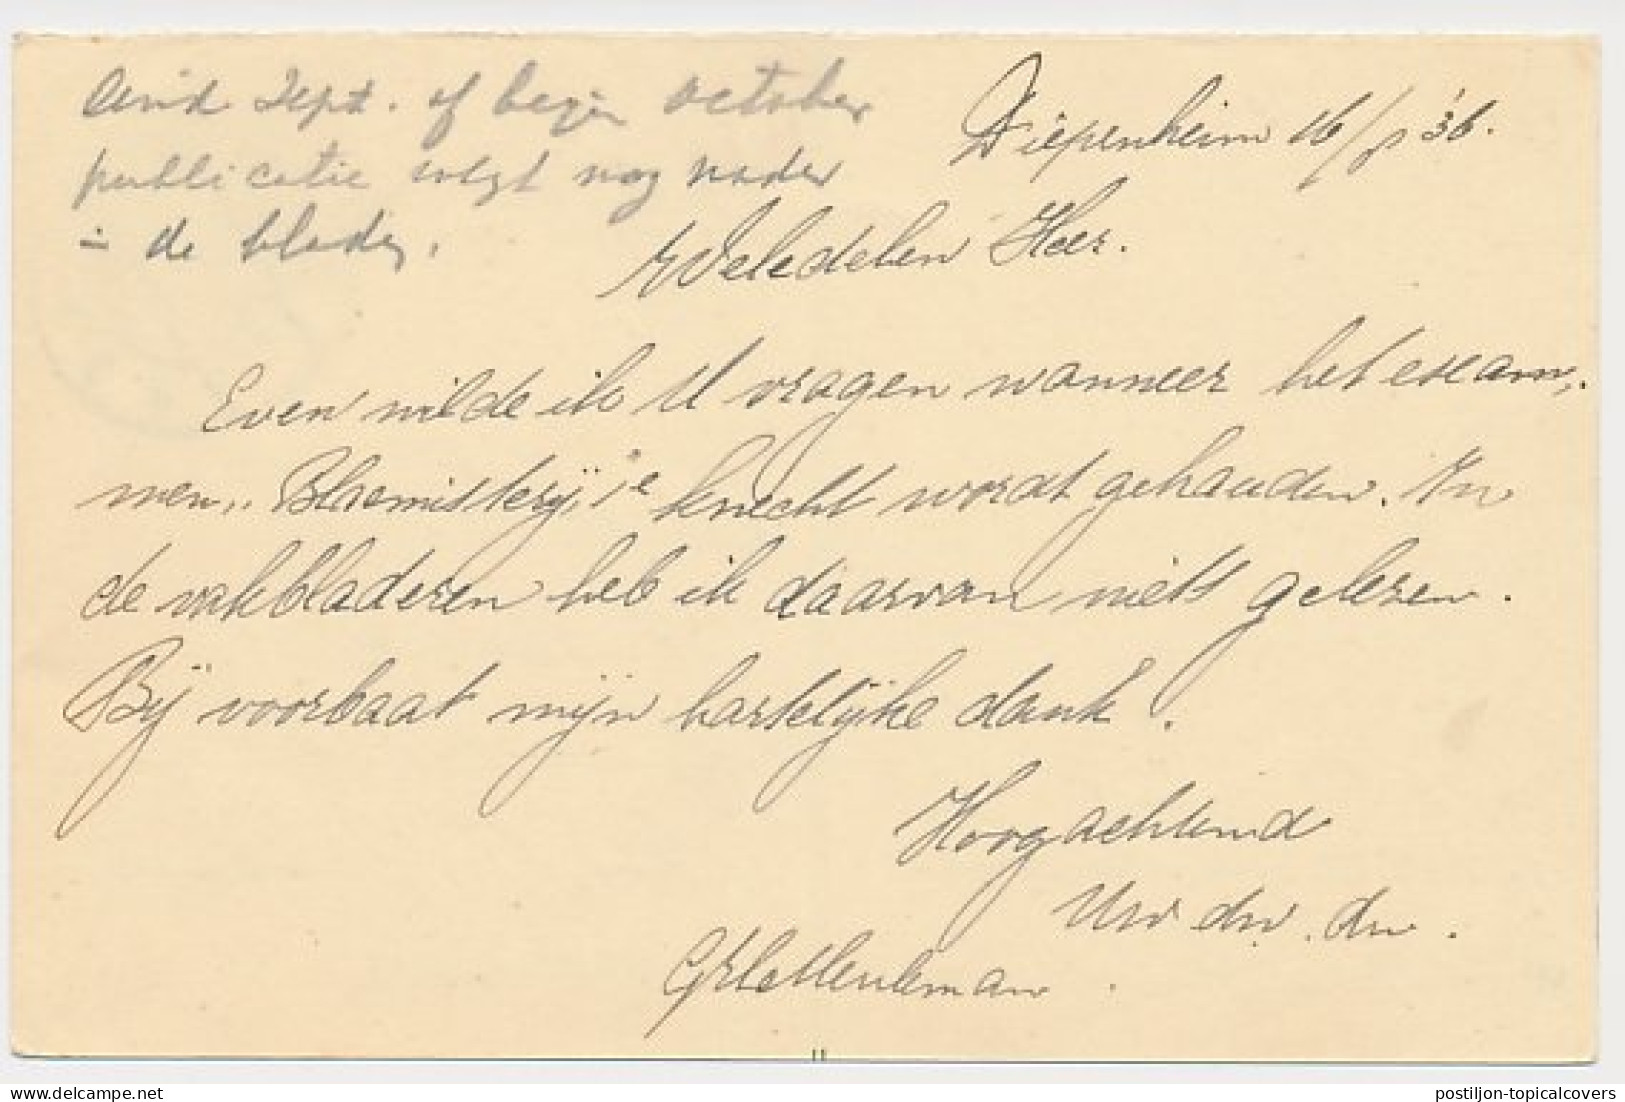 Eind Sept. of begin October
publicatie volgt nog nader
in de bladen.
Diepenheim 16/8 '36.
WelEdelen Heer.
Even wilde ik U vragen wanneer het exam,
men „ Bloemisterij 1e knecht wordt gehouden. In
de vakbladeren heb ik daarvan niets gelezen.
Bij voorbaat mijn hartelijke dank.
Hoogachtend
Uw dw. dn.
postiljon-topicalcovers